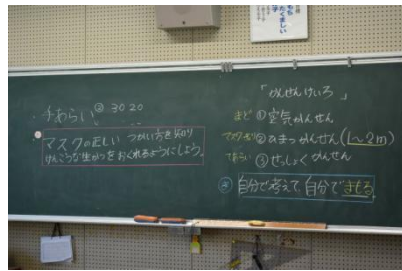 ・手あらい② 30 20
マスクの正しい つかい方を知り
けんこうな生かつを おくれるようにしよう。
「かんせんけいろ」
まど ①空気かんせん
マスク ②ひまつかんせん(1〜2m)
手あらい ③せっしょくかんせん
自分で考えて、自分できめる。